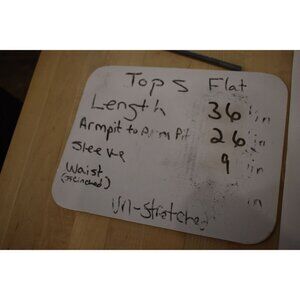 Tops Flat
Length 36 in
Armpit to Arm Pit 26 in
Sleeve 9 in
Waist in
(if cinched)
Un-Stretched